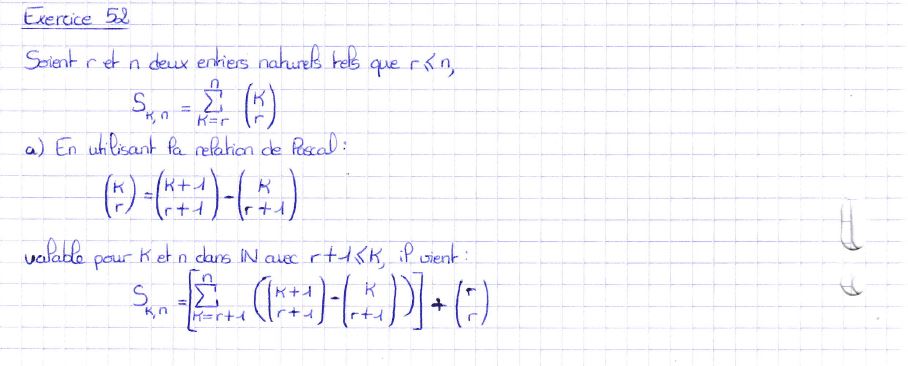 Exercice 52
Soient r et n deux entiers naturels tels que r ≤ n,
S_{K,n} = \sum_{K=r}^{n} \binom{K}{r}
a) En utilisant la relation de Pascal :
\binom{K}{r} = \binom{K+1}{r+1} - \binom{K}{r+1}
valable pour K et n dans IN avec r+1 ≤ K, il vient :
S_{K,n} = \left[ \sum_{K=r+1}^{n} \left( \binom{K+1}{r+1} - \binom{K}{r+1} \right) \right] + \binom{r}{r}